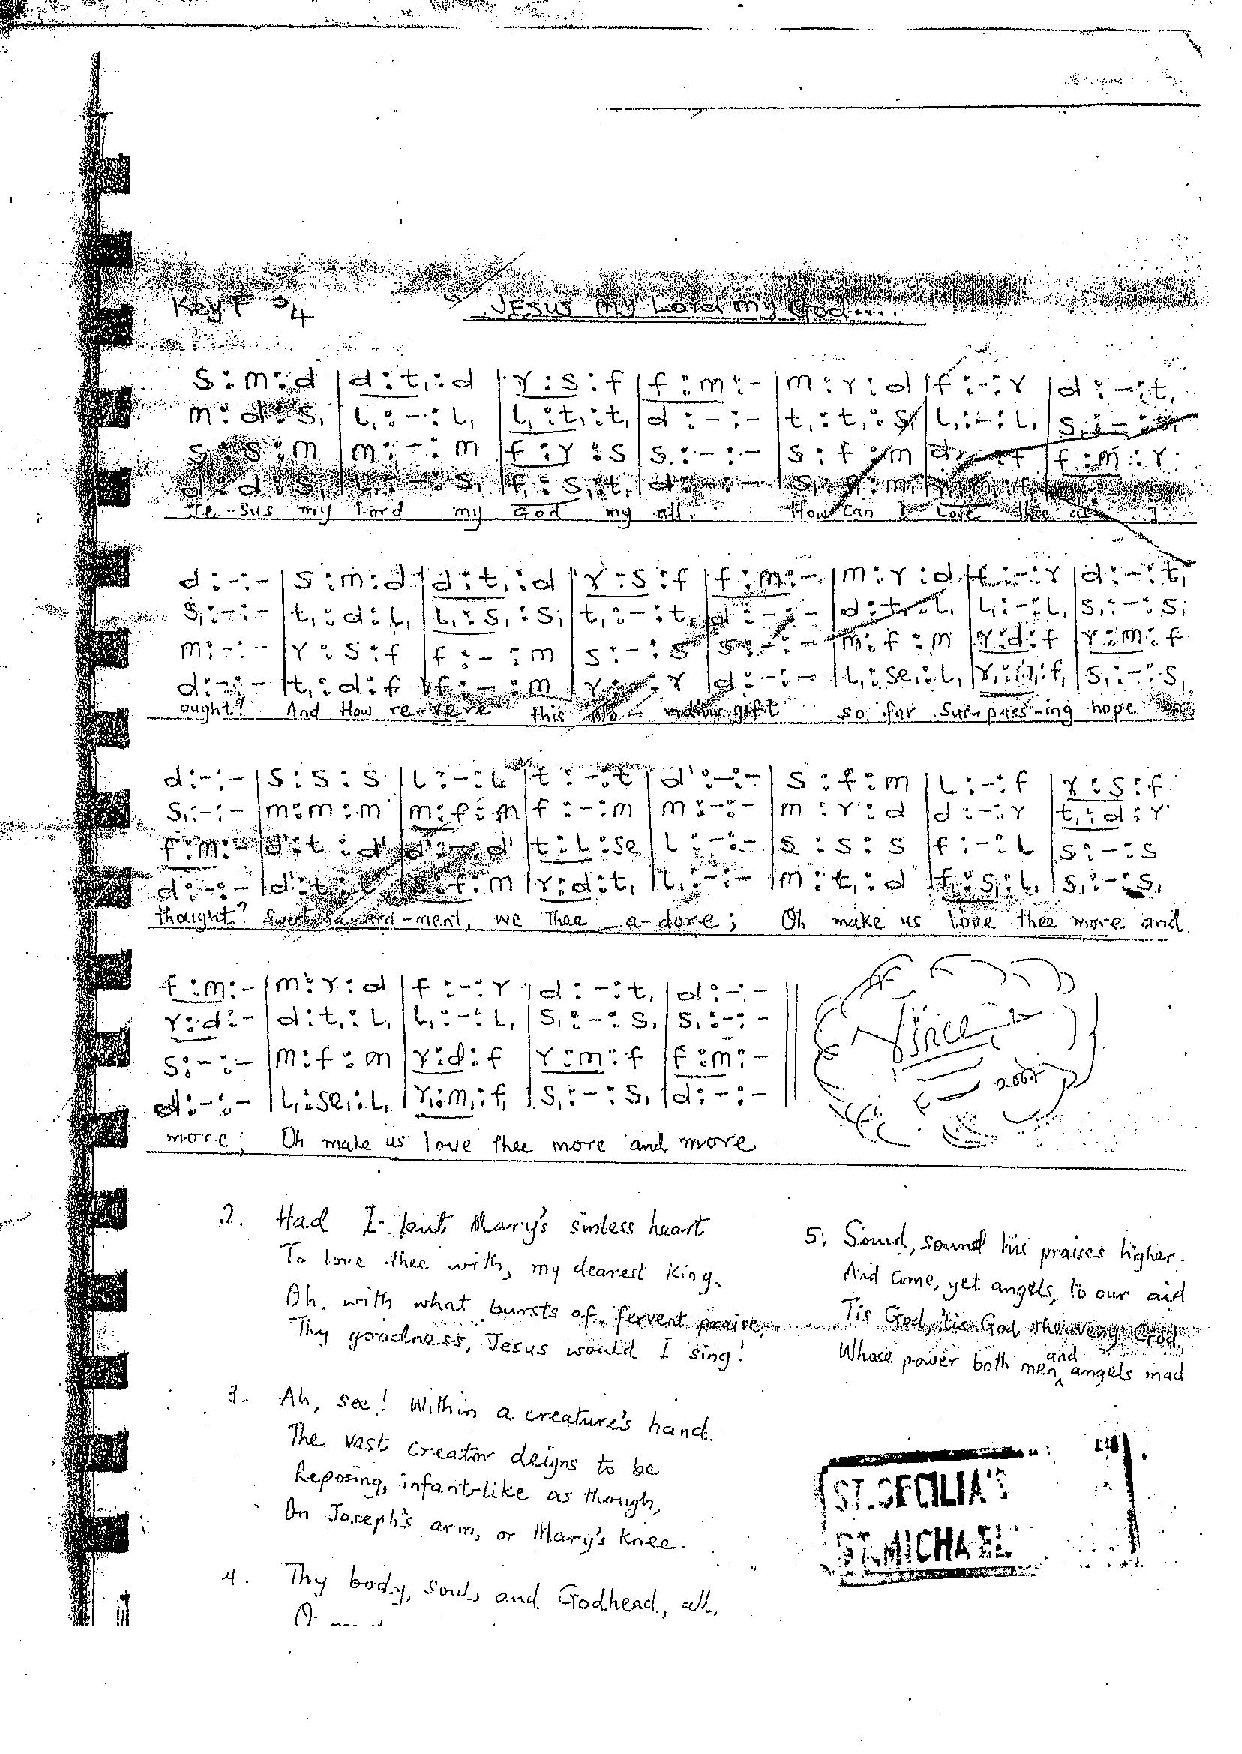 Key F 3/4
JESUS my Lord my God....
s : m : d | d : t, : d | r : s : f | f : m : - | m : r : d | f : - : r | d : - : t,
m : d : s, | l, : - : l, | l, : t, : t, | d : - : - | t, : t, : s, | l, : - : l, | s, : - : s,
s : m | m : - : m | f : r : s | s : - : - | s : f : m | f | f : m : r
Je-sus my Lord my God my all. How can I Love thee
d : - : - | s : m : d | d : t, : d | r : s : f | f : m : - | m : r : d | f : - : r | d : - : t,
s, : - : - | t, : d : l, | l, : s, : s, | t, : - : t, | d : - : - | d : t, : l, | l, : - : l, | s, : - : s,
m : - : - | r : s : f | f : - : m | s : - : s | s : - : - | m : f : m | r : d : f | r : m : f
d : - : - | t, : d : f | f : - : m | r : - : r | d : - : - | l, : se, : l, | f, | s, : - : s,
ought? And How re-vere this gift so far Sur-pass-ing hope
d : - : - | s : s : s | l : - : l | t : - : t | d' : - : - | s : f : m | l : - : f | r : s : f
s, : - : - | m : m : m | m : f : m | f : - : m | m : - : - | m : r : d | d : - : r | t, : d : r
f : m : - | d' : t : d' | d' : - : d' | t : l : se | l : - : - | s : s : s | f : - : l | s : - : s
d : - : - | d' : t : | f : m | r : d : t, | l, : - : - | m : t, : d | f : s, : l, | s, : - : s,
thought? Sweet -ment, we Thee a-dore; Oh make us love thee more and
f : m : - | m : r : d | f : - : r | d : - : t, | d : - : -
r : d : - | d : t, : l, | l, : - : l, | s, : - : s, | s, : - : -
s : - : - | m : f : m | r : d : f | r : m : f | f : m : -
d : - : - | l, : se, : l, | r, : m, : f, | s, : - : s, | d : - : -
more; Oh make us love thee more and more
2. Had I but Mary's sinless heart
To love thee with, my dearest King.
Oh, with what bursts of fervent praise,
Thy goodness, Jesus would I sing!
3. Ah, see! Within a creature's hand.
The vast creator deigns to be
Reposing, infant-like as though,
On Joseph's arm, or Mary's Knee.
4. Thy body, soul, and Godhead, all,
5. Sound, sound his praises higher.
And come, yet angels, to our aid
Tis God, tis God the very God
Whose power both men and angels mad
ST. CECILIA'S
ST. MICHAEL